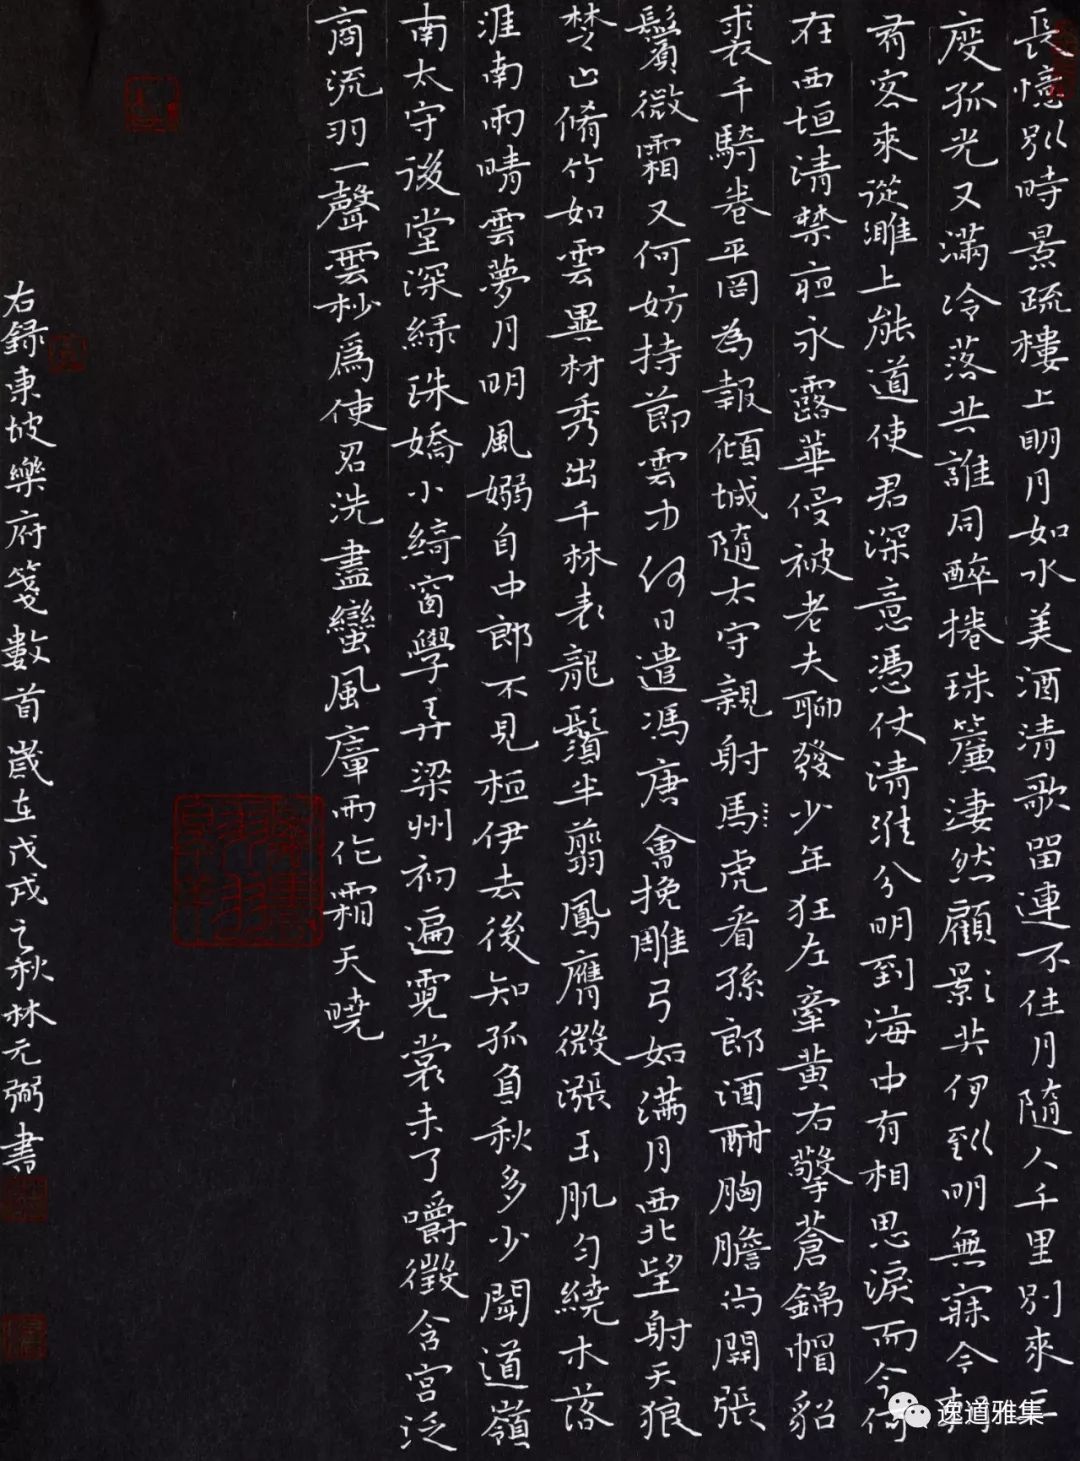 長憶別時景疏樓上明月如水美酒清歌留連不住月隨人千里別來三
度孤光又滿冷落共誰同醉捲珠簾淒然顧影共伊到明無寐今朝
有客來從濉上能道使君深意憑仗清淮分明到海中有相思淚而今何
在西垣清禁夜永露華侵被老夫聊發少年狂左牽黃右擎蒼錦帽貂
裘千騎卷平岡為報傾城隨太守親射馬虎看孫郎酒酣胸膽尚開張
鬢微霜又何妨持節雲中何日遣馮唐會挽雕弓如滿月西北望射天狼
楚山脩竹如雲異材秀出千林表龍鬚半翦鳳膺微漲玉肌勻繞木落
淮南雨晴雲夢月明風嫋自中郎不見桓伊去後知孤負秋多少聞道嶺
南太守後堂深綠珠嬌小綺窗學弄梁州初遍霓裳未了嚼徵含宮泛
商流羽一聲雲杪為使君洗盡蠻風瘴雨作霜天曉
右錄東坡樂府箋數首歲在戊戌之秋林元弼書
逸道雅集